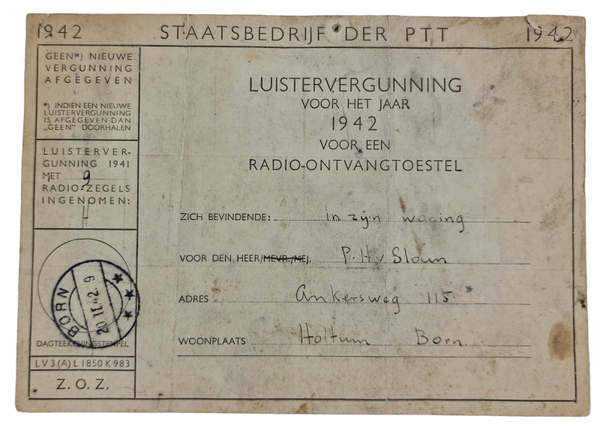 1942 STAATSBEDRIJF DER PTT 1942
GEEN*) NIEUWE
VERGUNNING
AFGEGEVEN
*) INDIEN EEN NIEUWE
LUISTERVERGUNNING
IS AFGEGEVEN DAN
„GEEN” DOORHALEN
LUISTERVER-
GUNNING 1941
MET 9
RADIO-ZEGELS
INGENOMEN:
BORN
20 II 42 9
DAGTEEKENINGSTEMPEL
LV3 (A) L 1850 K 983
Z. O. Z.
LUISTERVERGUNNING
VOOR HET JAAR
1942
VOOR EEN
RADIO-ONTVANGTOESTEL
ZICH BEVINDENDE: in zijn woning
VOOR DEN HEER/MEVR./MEJ. P.H. v Sloun
ADRES Ankersweg 115.
WOONPLAATS Holtum Born